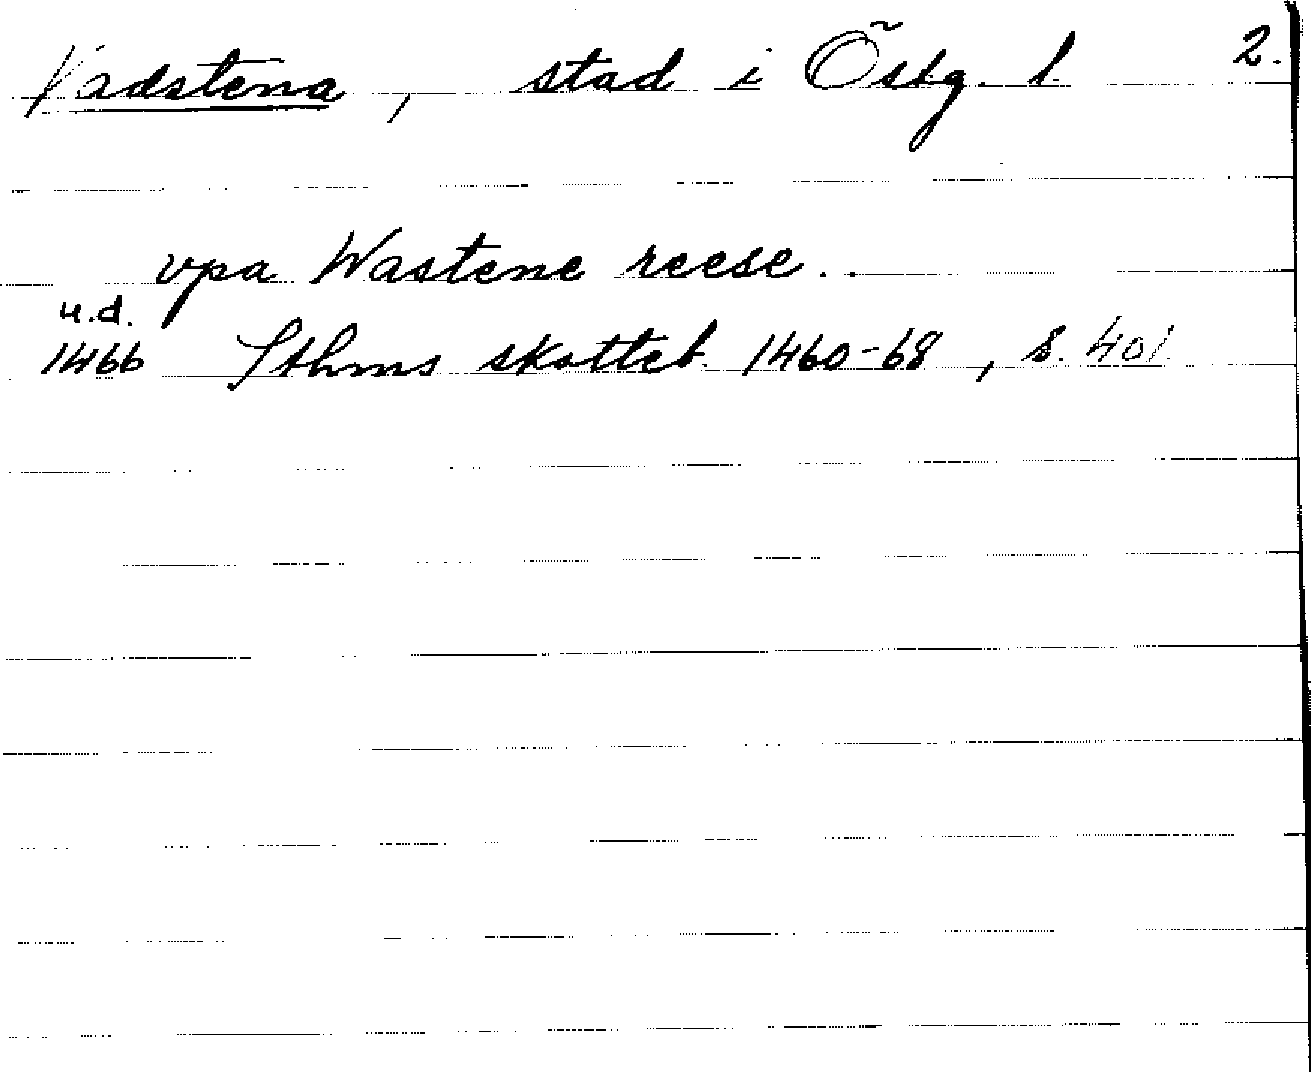 Vadstena, stad i Östg. l. 2.
vpa Wastene reese..
u.d.
1466 Sthms skotteb. 1460-68, s. 401